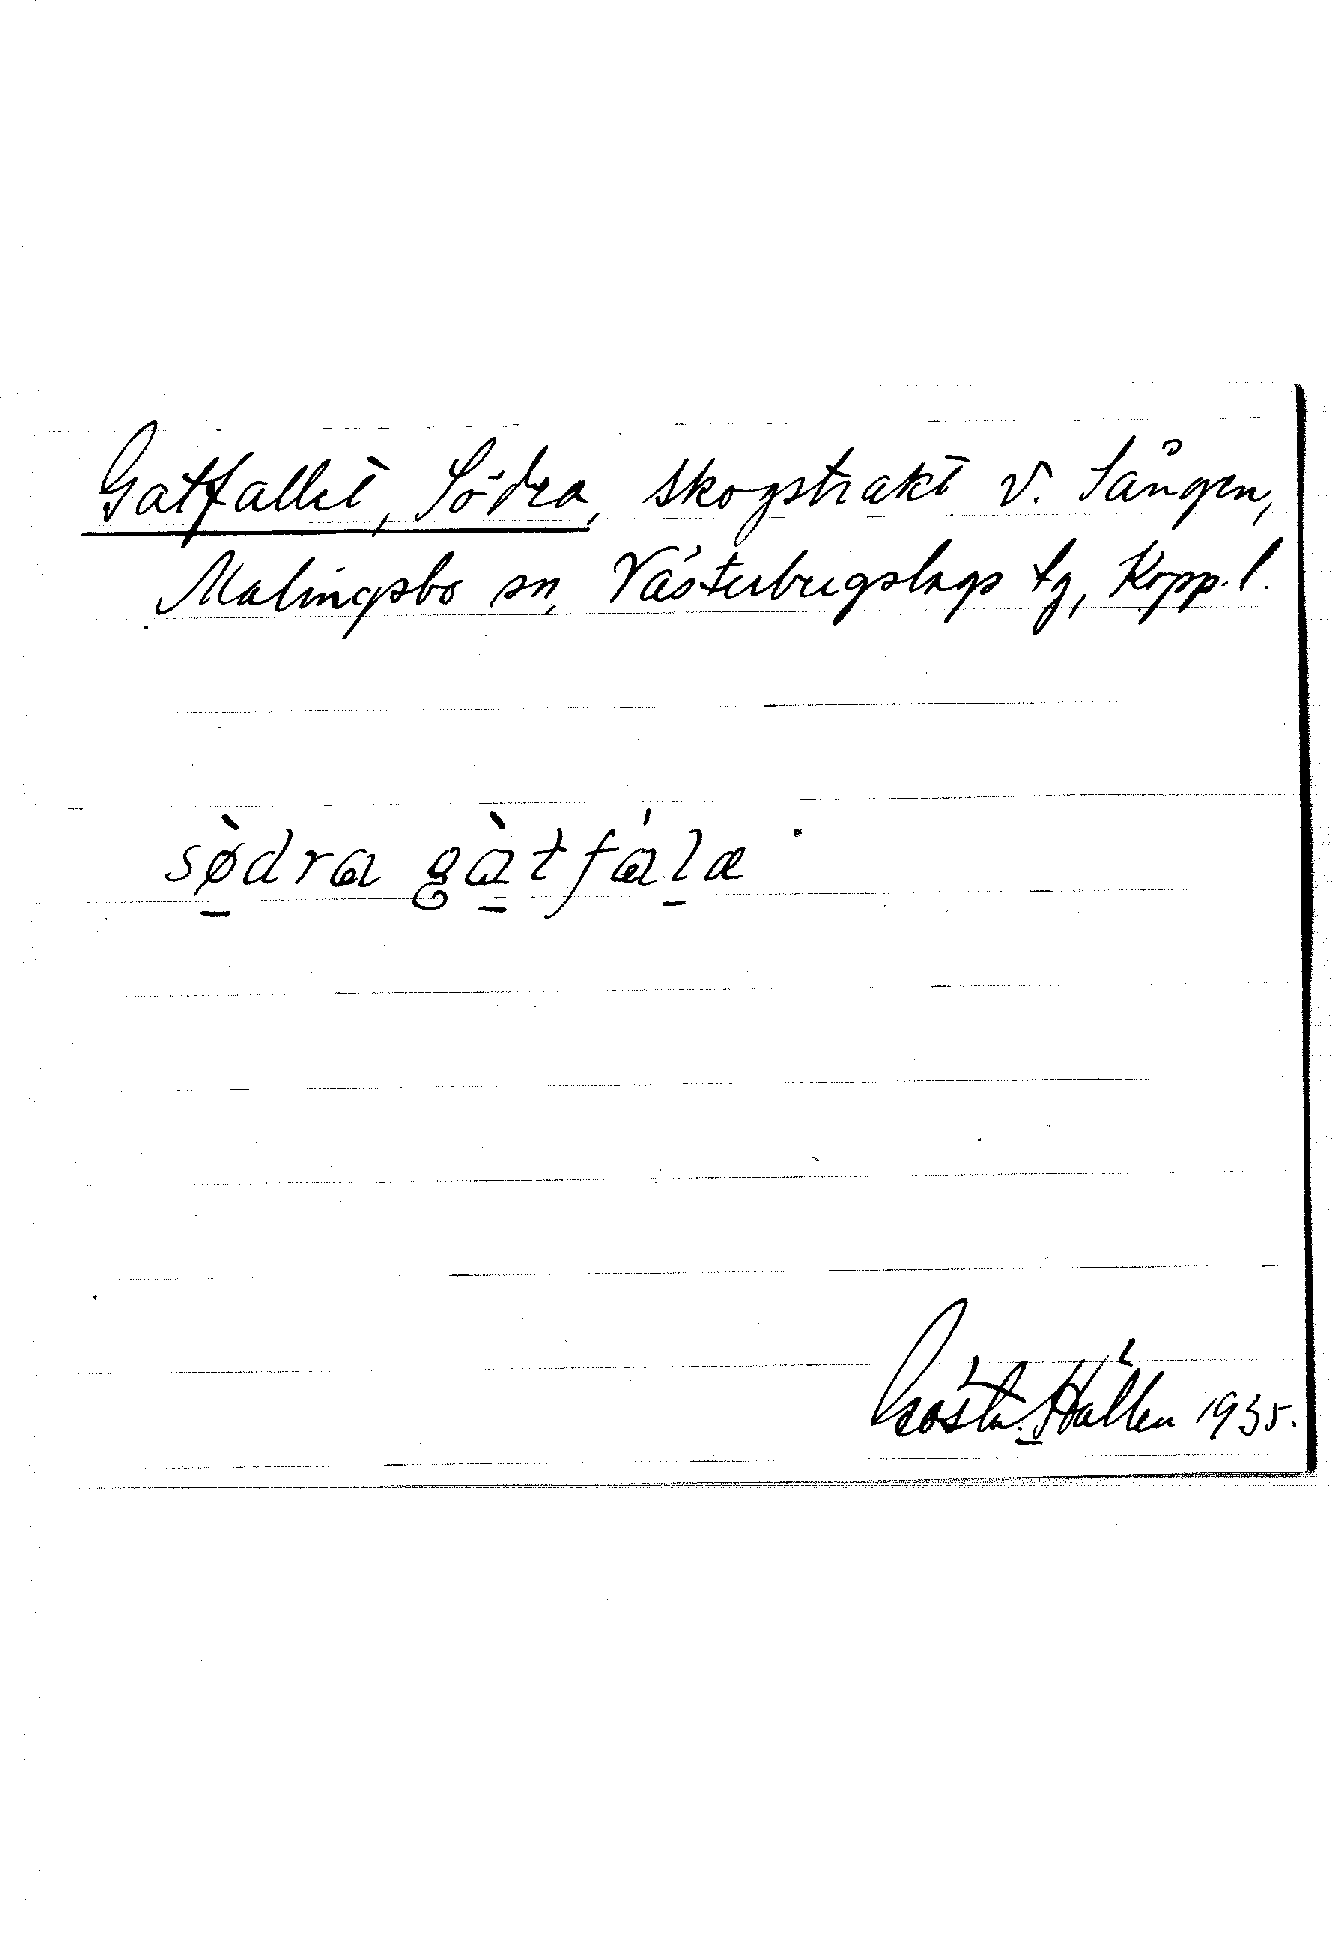 Gatfallet, Södra, skogstrakt v. Sången,
Malingsbo sn, Västerbergslags tg, Kopp. l.
sø̀dra gàtfálæ
Gösta Hallén 1935.